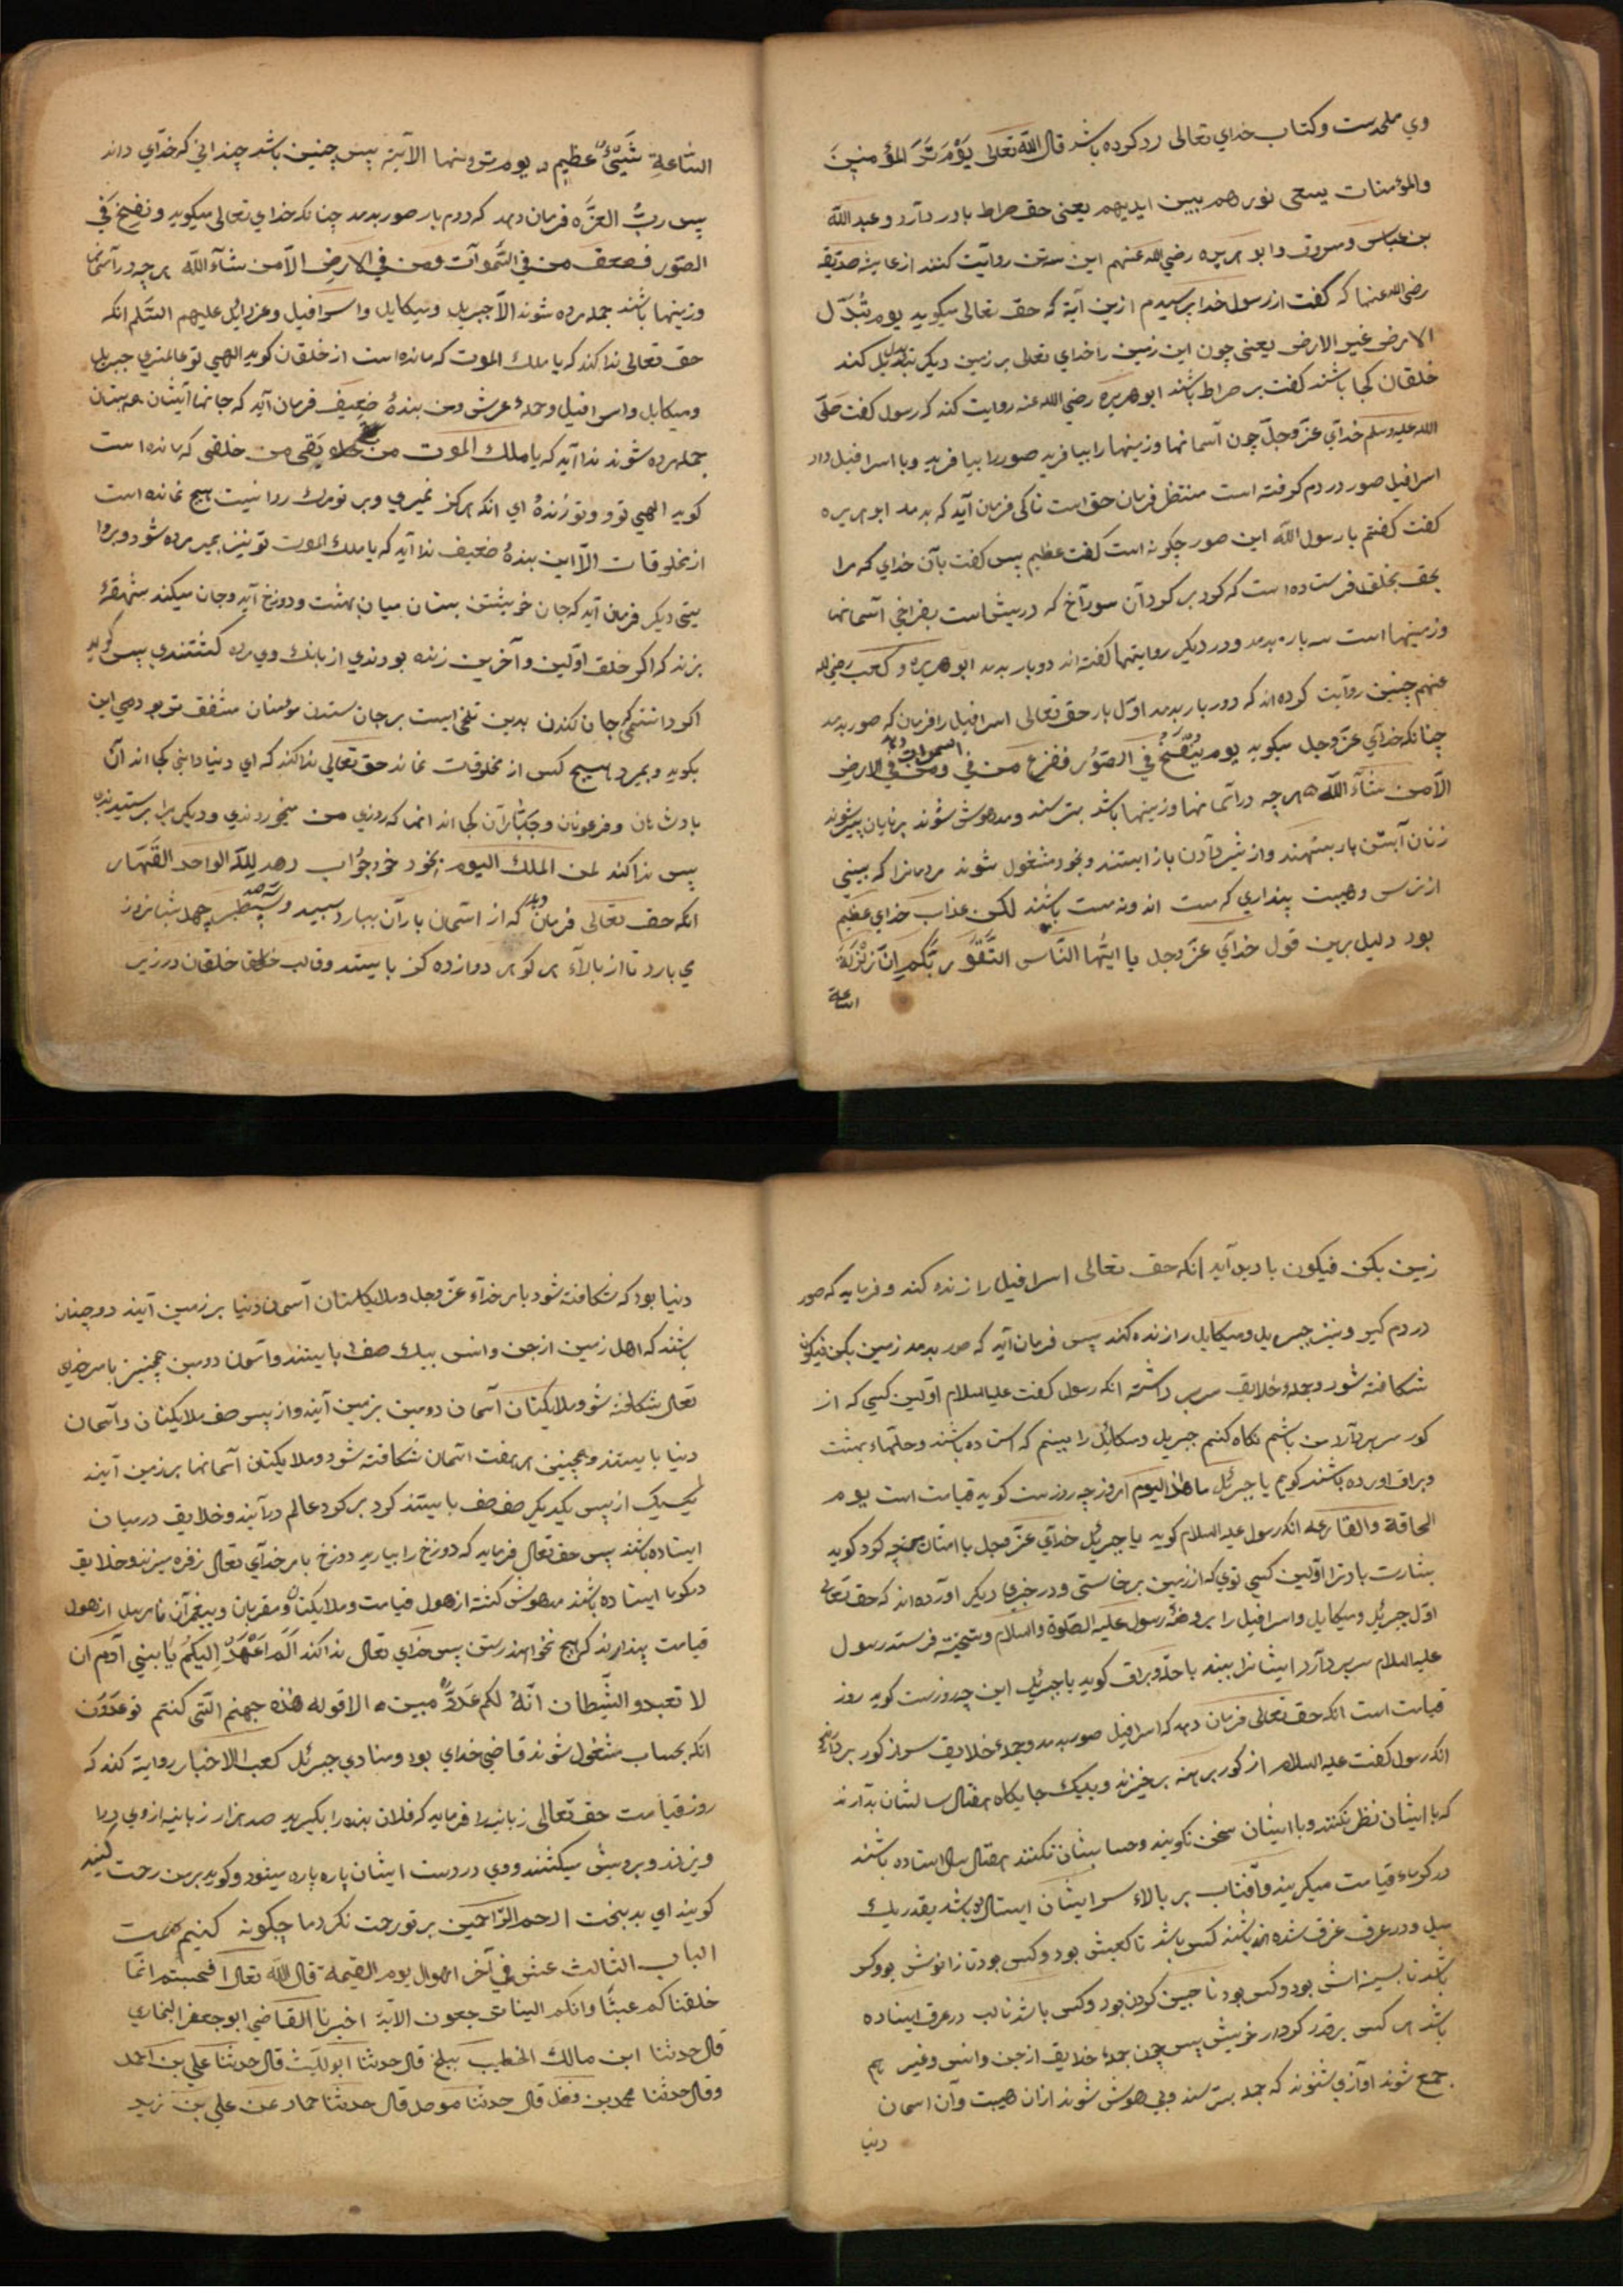 وي ملحدست وكتاب خداي تعالى رد كرده باشد قال الله تعالى يَوْمَ تَرَ المؤمنينَ
والمؤمنات يسعى نورهم بين ايديهم يعنى حق صراط بادر دآرد وعبد الله
بن عباس ومسروق وابو هريره رضي الله عنهم اين سه تن روايت كنند از عايشه صديقه
رضى الله عنها كه گفت از رسول خدا پرسيدم ازين آية كه حق تعالى ميكويد يوم تُبدَّل
الارض غير الارض يعنى چون اين زمين را خداي تعالى بر زمين ديكر تبديل كند
خلقان كجا باشند كفت بر صراط باشند ابو هريره رضي الله عنه روايت كند كه رسول كفت صَلَّى
الله عليه وسلم خدآي عزّ وجلّ چون آسمانها وزمينها را بيافريد صور را بيافريد وبا اسرافيل داد
اسرافيل صور در دم كرفته است منتظر فرمان حق است تا كى فرمان آيد كه بدمد ابو هريره
كفت كفتم يا رسول الله اين صور چكونه است كفت عظيم پس كفت بآن خداي كه مرا
بحق بخلق فرستاده است كه كرد بر كرد آن سورآخ كه دريشاست بفراخي آسمانها
وزمينها است سه باره بدمد ودر ديكر روايتها كفته اند دوبار بدمد ابو هريره وكعب رضي الله
عنهم چنين روآيت كرده اند كه دوربار بدمد اوّل بار حق تعالى اسرافيل را فرمان كه صور بدمد
چنانكه خدآي عزّ وجل ميكويد يوم يُنْفَخُ في الصّوُر ففزع من في السموات ومن في الارض
الاّ من شآء الله هرچه در آسمانها وزمينها باشد بترسند ومدهوش شوند برنايان پير شوند
زنان آبستن بار بنهند واز شير دآدن باز ايستند وبخود مشغول شوند مردمانرا كه بينى
از ترس وهيبت پنداري كه مست اند ونه مست باشند لكن عذاب خداي عظيم
بود دليل برين قول خدآي عزّ وجل يا ايّها النّاس اتّقُو ربّكم انّ زَلْزَلَة
الساعة
السّاعةِ شَيْئٌ عظيم يوم ترونها الآية پس چنين باشد چندانى كه خدآي داند
پس ربُّ العزّه فرمان دهد كه دوم بار صور بدمد چنانكه خداي تعالى ميكويد ونفخ فى
الصّور فصعق من في السَّموآت ومن في الارض الاّ من شآء الله هر چه در آسمانها
وزمينها باشند جمله مرده شوند الاّ جبريل وميكايل واسرافيل وعزرايل عليهم السّلم انكه
حق تعالى ندا كند كه يا ملك الموت كه مانده است از خلقان كويد الهي تو عالمتري جبريل
وميكايل واسرافيل وحمله عرش ومن بندهٔ ضعيف فرمان آيد كه جانهآ ايشان هم بستان
جمله مرده شوند ندا آيد كه يا ملك الموت من يَقى من خلقى كه مانده است
كويد الهي تو وتو زندهٔ اي انكه هركز نميري وبر تو مرك روا نيست هيچ نمانده است
از مخلوقات الاّ اين بندهٔ ضعيف ندا آيد كه يا ملك الموت تو نيز بمير مرده شود وبروا
يتى ديكر فرمان آيد كه جان خويشتن بستان ميان بهشت ودوزخ آيد وجان ميكند شهقهٔ
بزند كه اكر خلق اوّلين وآخرين زنده بودندي از بانك وي مرده كشتندي پس كويد
اكر دانستمى كه جان كندن بدين تلخى ايست بر جان ستدن مؤمنان مشفق تر بودمي اين
بكويد وبميرد هيچ كس از مخلوقات نماند حق تعالى ندا كند كه اي دنيا دانى كجا اند آن
پادشاهان وفرعونان وجبّارآن كجا اند انها كه روزي من ميخوردندي وديكري را پرستيدندي
پس ندا كند لمن الملك اليوم بخود خود جوُاب دهد للّه الواحد القهّار
انكه حق تعالى فرمان دهد كه از اسمان باران ببارد سپيد وسطبر چهل شبانروز
مي بارد تا از بالآء هر كوهى دوازده كز بايستد وقالب خلقان در زير
زمين بكن فيكون باديد آيد انكه حق تعالى اسرافيل را زنده كند وفرمايد كه صور
در دم كير ونيز جبريل وميكايل را زنده كند پس فرمان آيد كه صور بدمد زمين بكن فيكون
شكافته شود وجمله خلايق سر بر داشته انكه رسول كفت عليه السلام اوّلين كسي كه از
كور سر بر دآرد من باشم نكاه كنم جبريل وميكائيل را بينم كه استاده باشند وحلّهاء بهشت
وبراق آورده باشند كويم يا جبرئل ما هذا اليوم امروز چه روزست كويد قيامت است يوم
الحاقة والقارعه انكه رسول عليه السلام كويد يا جبرئيل خدآي عزّ وجل با امتان من چه كرد كويد
بشارت باد ترا اوّلين كسي توي كه از زمين بر خاستي ودر خبري ديكر آورده اند كه حق تعالى
اوّل جبرئل وميكايل واسرافيل را بروضهٔ رسول عليه الصّلوة والسلام فرستد رسول
عليه السلام سر بر دآرد ايشانرا بيند با حلّه وبراق كويد يا جبرئيل اين چه روزست كويد روز
قيامت است انكه حق تعالى فرمان دهد كه اسرافيل صور بدمد وجمله خلايق سر از كور بر دآرند
انكه رسول كفت عليه السلام از كور برهنه برخيزند وبيك جايكاه هفتاد سالشان بدآرند
كه با ايشان نظر نكنند وبا ايشان سخن نكويند وحسابشان نكنند هفتاد سال استاده باشند
در كرماء قيامت ميكريند وآفتاب بر بالاء سر ايشان ايستاده باشد بقدر يك
ميل ودر عرق غرق شده باشند كس باشد تا كعبش بود وكس بود تا زانوش بود وكس
باشد تا بسينه اش بود وكس بود تا جبين كردن بود وكس باشد تا لب در عرق ايستاده
باشد هر كسى بر قدر كردار خويش پس چون جمله خلايق از جن وانس وغير هم
جمع شوند آوآزي شنوند كه جمله بترسند وبي هوش شوند از ان هيبت وآن اسمان
دنيا
دنيا بود كه شكافته شود بامر خدآء عزّ وجل وملايكتان آسمان دنيا بر زمين آيند دوچندان
باشند كه اهل زمين از جن وانس بيك صف بايستند وآسمان دومين همچنين بامر خداي
تعالى شكافته شود وملايكتان آسمان دومين بزمين آيند واز پس صف ملايكتان آسمان
دنيا بايستند وهمچنين هر هفت اسمان شكافته شود وملايكتان آسمانها بر زمين آيند
يك يك از پس يكديكر صف صف بايستند كرد بر كرد عالم درآيند وخلايق در ميان
ايستاده باشند پس حق تعالى فرمايد كه دوزخ را بياريد دوزخ بامر خدآي تعالى زفره ميزند وخلايق
ايستاده باشند مدهوش كشته از هول قيامت وملايكتان ومقربان وپيغمبرآن مرسل از هول
قيامت پندارند كه هيچ نخواهند رستن پس خداي تعالى ندا كند اَلَم اَعْهَدْ اِليكُم يا بني آدم ان
لا تعبدو الشّيطان انّهُ لكم عَدوٌّ مبين الا قوله هذه جهنم الّتى كنتم توعدَون
انكه بحساب مشغول شوند قاضي خداي بود ومنادي جبرئل كعب الاخبار رواية كند كه
روز قيامت حق تعالى زبانيه را فرمايد كه فلان بنده را بكيريد صد هزار زبانيه از وي درا
ويزند وبرويش ميكشند ووي در دست ايشان پاره پاره ميشود وكويد بر من رحمت كنيد
كويند اي بدبخت ارحم الرّاحمين بر تو رحمت نكرد ما چكونه كنيم
الباب الثالث عشر في آخر اهوال يوم القيمة قال الله تعالى افحسبتم انّما
خلقناكم عبثًا وانكم الينا ترجعون الآية اخبرنا القاضي ابو جعفر البخاري
قال حدثنا ابن مالك الخطيب ببلخ قال حدثنا ابو الليث قال حدثنا علي بن احمد
وقال حدثنا محمد بن فضل قال حدثنا موصل قال حدثنا حماد عن علي بن زيد